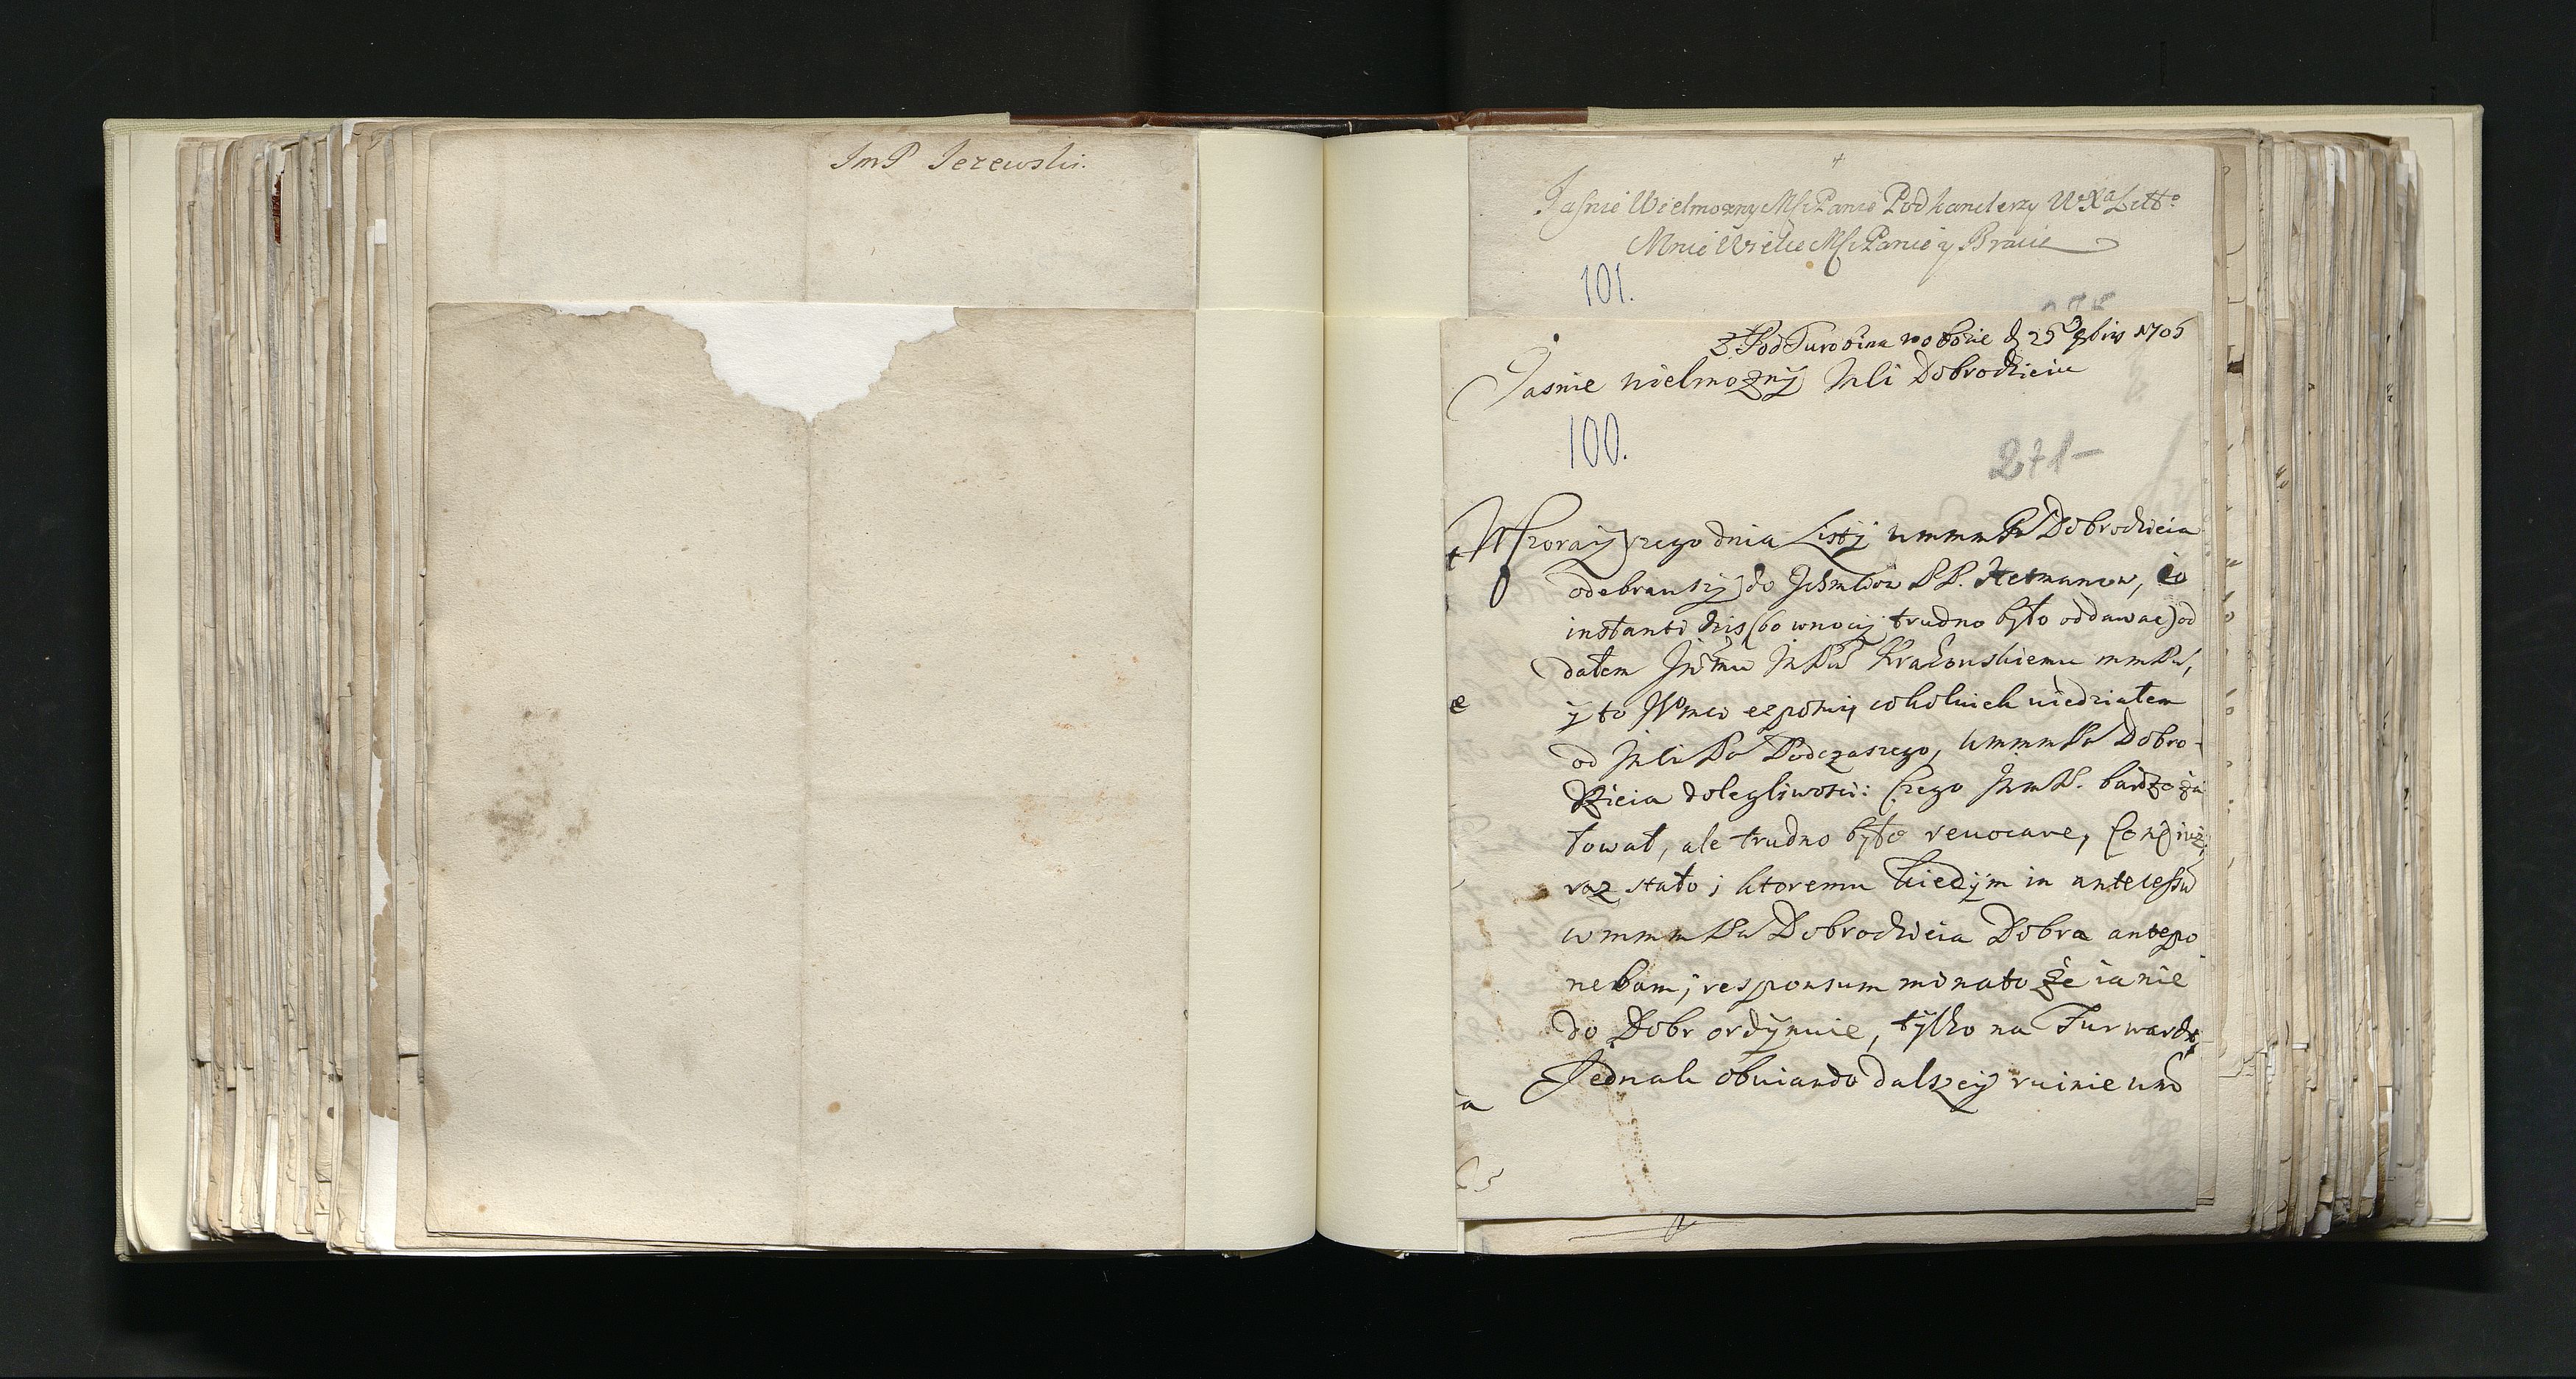 JmP Jezewski.
Jasnie Wielmozny Msci Panie Podkanclerzy WoXaLitto
Mnie Wielce Msci Panie y Bracie
101.
275
z Pod Turobina wobozie d 25 9bris 1705
Jasnie wielmozny Mci Dobrodzieiu
100.
271-
Wczorayszego dnia Listÿ wmmmPa Dobrodzieia
odebrawszÿ do Jchmciow PP. Hetmanow, eo
instanti dzis (bo wnocÿ trudno było oddawac) od
dałem Jmu JmPu Krakowskiemu mmPu,
ÿ to Jmci exponuj cokolwiek wiedziałem
od Jmci Pa Podczaszego, wmmmPa Dobro-
dzieia dolegliwosci: Czego JmmP. bardzo ża
łował, ale trudno było reuocare, co się iuz
raz stało; ktoremu kiedÿm in antecessu
wmmmPa Dobrodzieia Dobra antepo
nebam; responsum minato że ia nie
do Dobr ordÿnuie, tÿlko na Furwardt
Jednak obuiando dalszeÿ ruinie wm